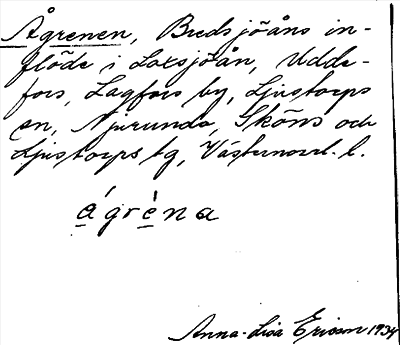 Ågrenen, Bredsjöåns in-
flöde i Laxsjöån, Udde-
fors, Lagfors by, Ljustorps
en, Njurunda, Sköns och
Ljustorps tg, Västernorrl. l.
ágrèna
Anna-Lisa Ericson 1934